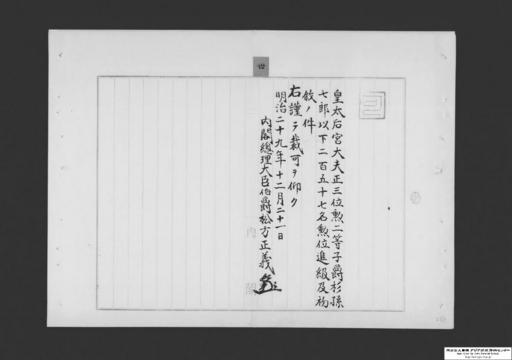 皇太后宮大夫正三位勲二等子爵杉孫
七郎以下二百五十七名勲位進級及初
叙ノ件
右謹テ裁可ヲ仰ク
明治二十九年十二月二十一日
内閣総理大臣伯爵松方正義